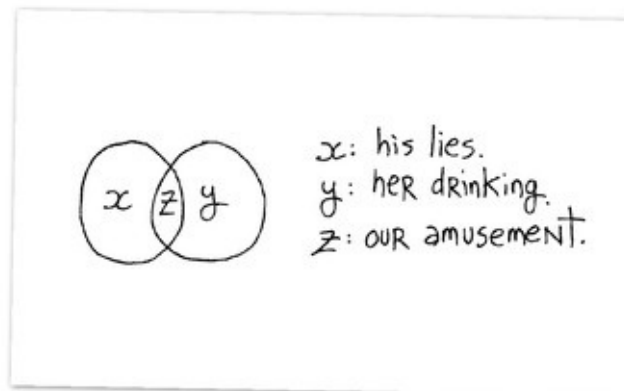 x z y
x: his lies.
y: her drinking.
z: our amusement.